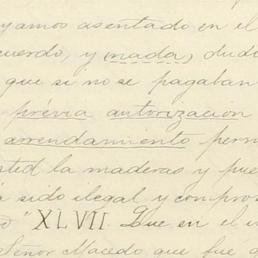 yamos asentado en el
cuerdo, y nada, dudi
que si no se pagaban
prévia autorizacion
arrendamiento perm
sted la maderas y pue
á sido ilegal y compro
" XLVII. Que en el
Señor Macedo que fue